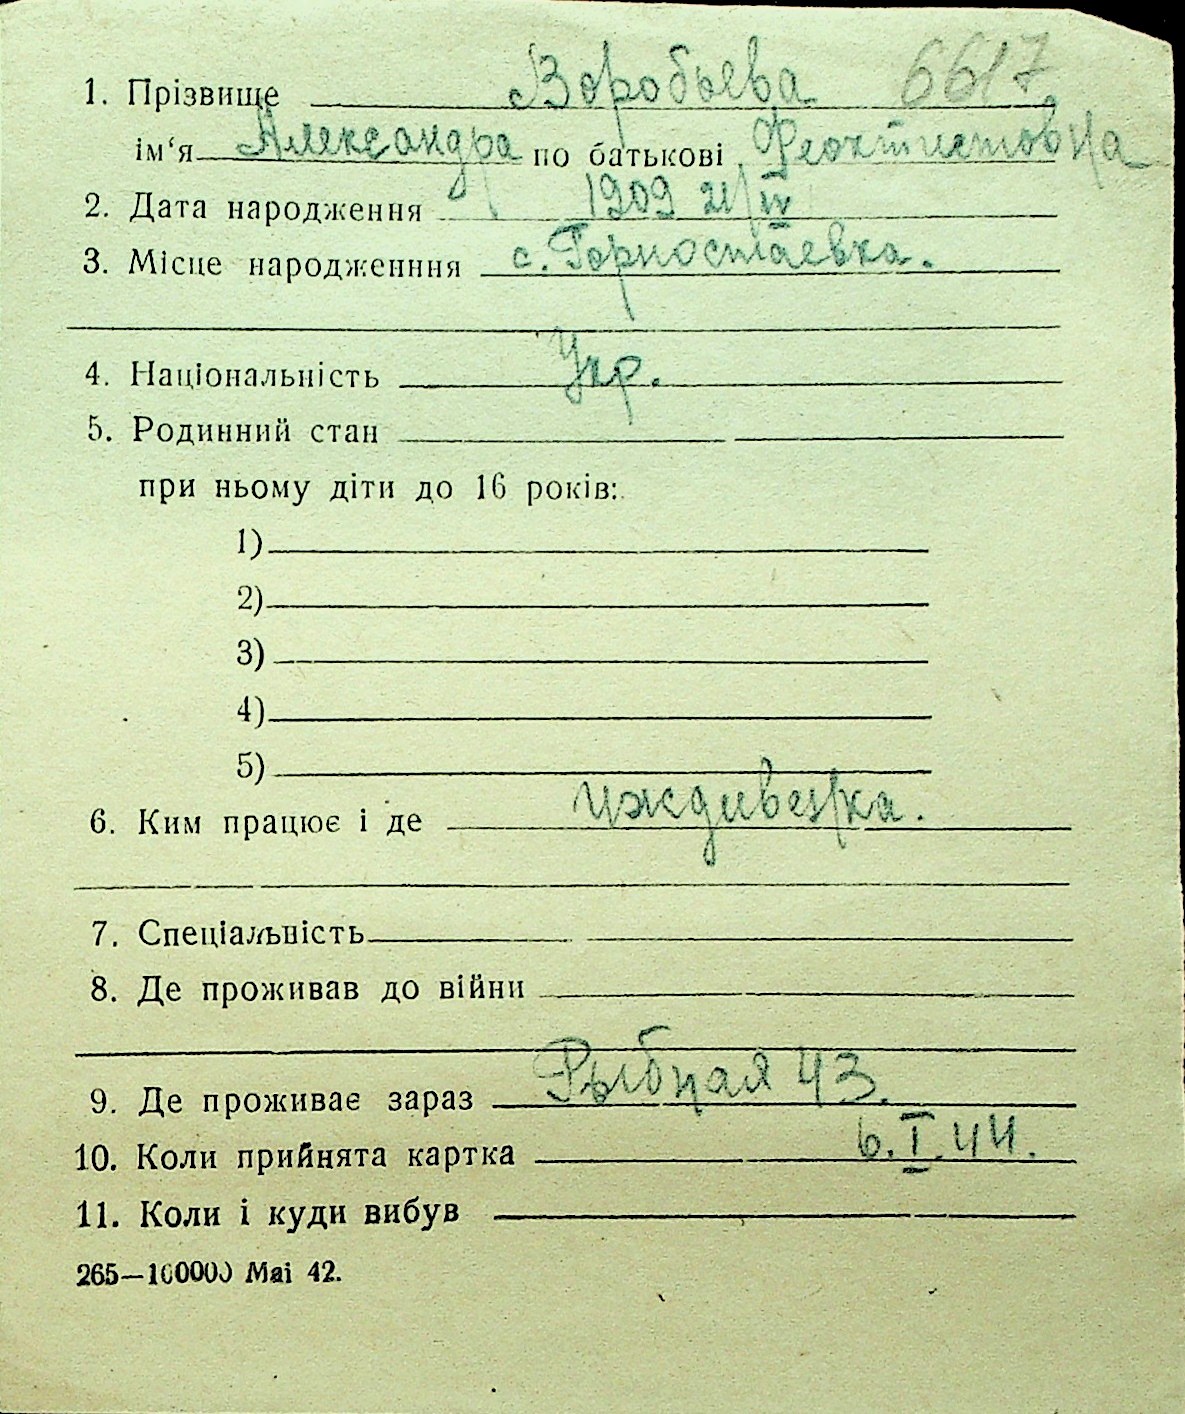 1. Прізвище Воробьева 6617
ім‘я Александра по батькові Феоктистовна
2. Дата народження 1909 21/IV
3. Місце народженння с. Горностаевка.
4. Національність Укр.
5. Родинний стан
при ньому діти до 16 років:
1)
2)
3)
4)
5)
6. Ким працює і де иждивенка.
7. Спеціальність
8. Де проживав до війни
9. Де проживає зараз Рыбная 43.
10. Коли прийнята картка 6.I.44.
11. Коли і куди вибув
265—100000 Mai 42.